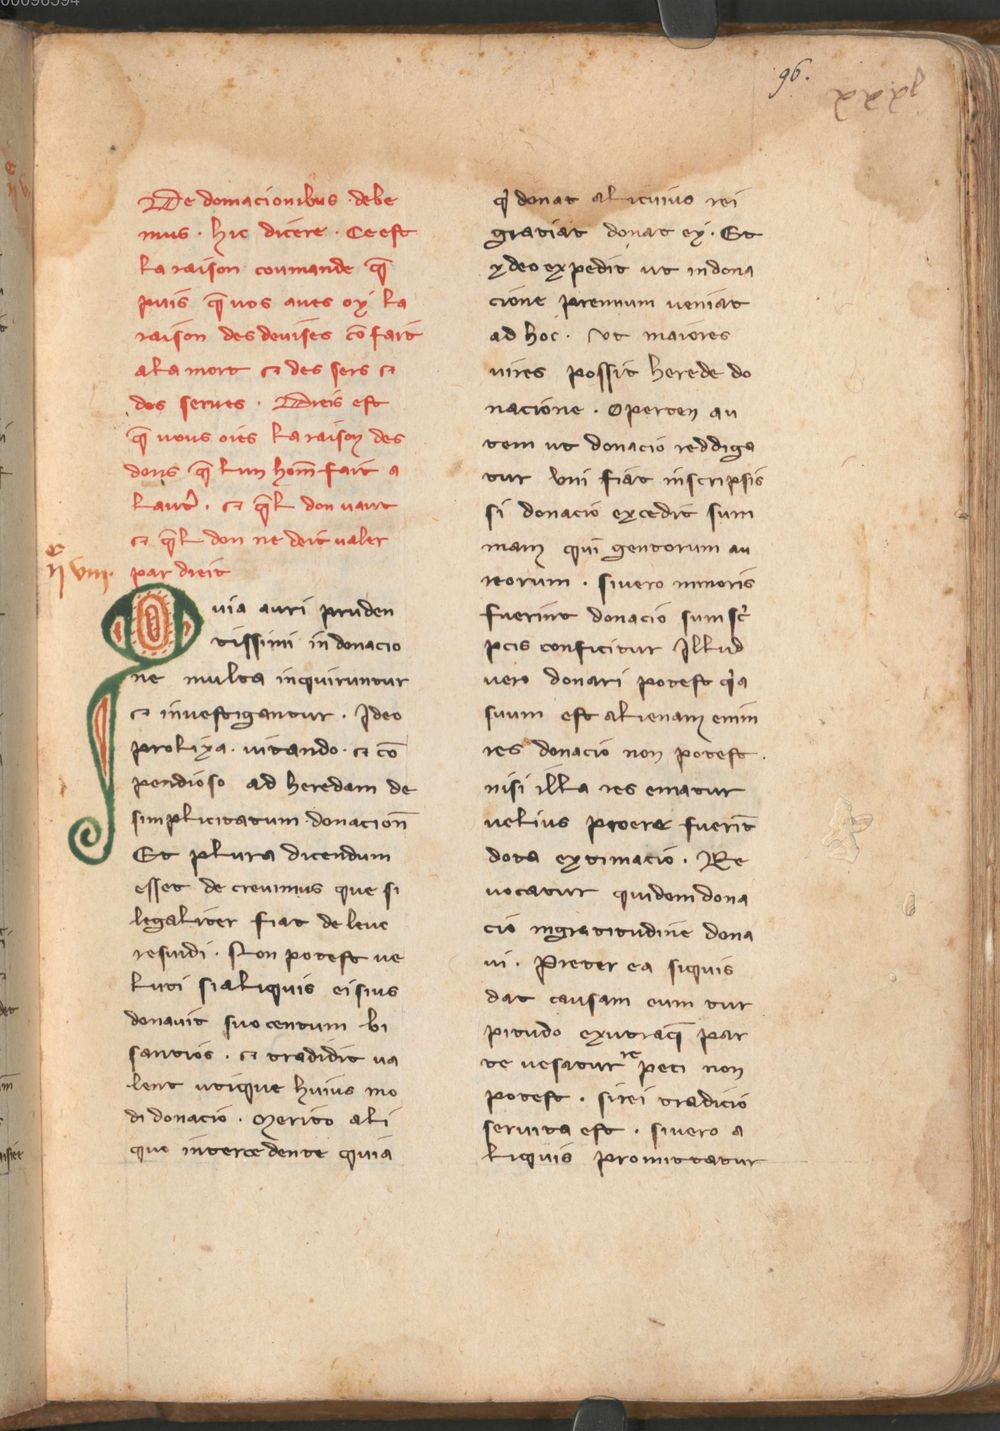 00096594
96.
lxxx
De domacionibus · debe
mus · hic dicere · Ce est
la raison coumande q̄
puis q̄ vos aves oy la
raison des devises cō fait
a la mort et des sers et
des serves · Dreis est
q̄ vous oies la raison des
dons q̄ lun hom̄ fait a
laut̓ · et q̄l don vaut
et q̄l don ne deit valer
par dreit
viii·
Quia auri pruden
tissimi in donacio
ne multa inquiruntur
et investigantur · Ideo
prolixa · vitando · et cō
pendioso ad heredam de
simplicitatum donacion̄
Et plura dicendum
esset de crevimus que si
legaliter fiat de leve
resindi · Non potest ve
luti si aliquis ei sius
donavit suo centum bi
santios · et tradidit va
lent utique huius mo
di donacio · Merito ali
quo intercedente quia
q̓ donat alicuius rei
gratiat donat ex · Et
ydeo expedit ut in dona
cione premium veniat
ad hoc · Ut maiores
vires possit herede do
nacione · Operten au
tem ut donacio reddiga
tur Vni fiat inscripsis
si donacio excedit sum
mam quigentorum au
reorum · si vero minoris
fuerint donacio sum sc̓
ptis conficitur Illud
vero donari potest q̓a
suum est alienam enim
res donacio non potest ·
nisi illa res ematur
vel ius preere fuerīt
dota extimacio · Re
vocatur quidem dona
cio ingratitudine dona
vi · Preter ea siquis
dat causam eum tur
pitudo ex utraq̄ par
te vesatur re peti non
potest · si rei tradicio
servita est · si vero a
liquis promittatur